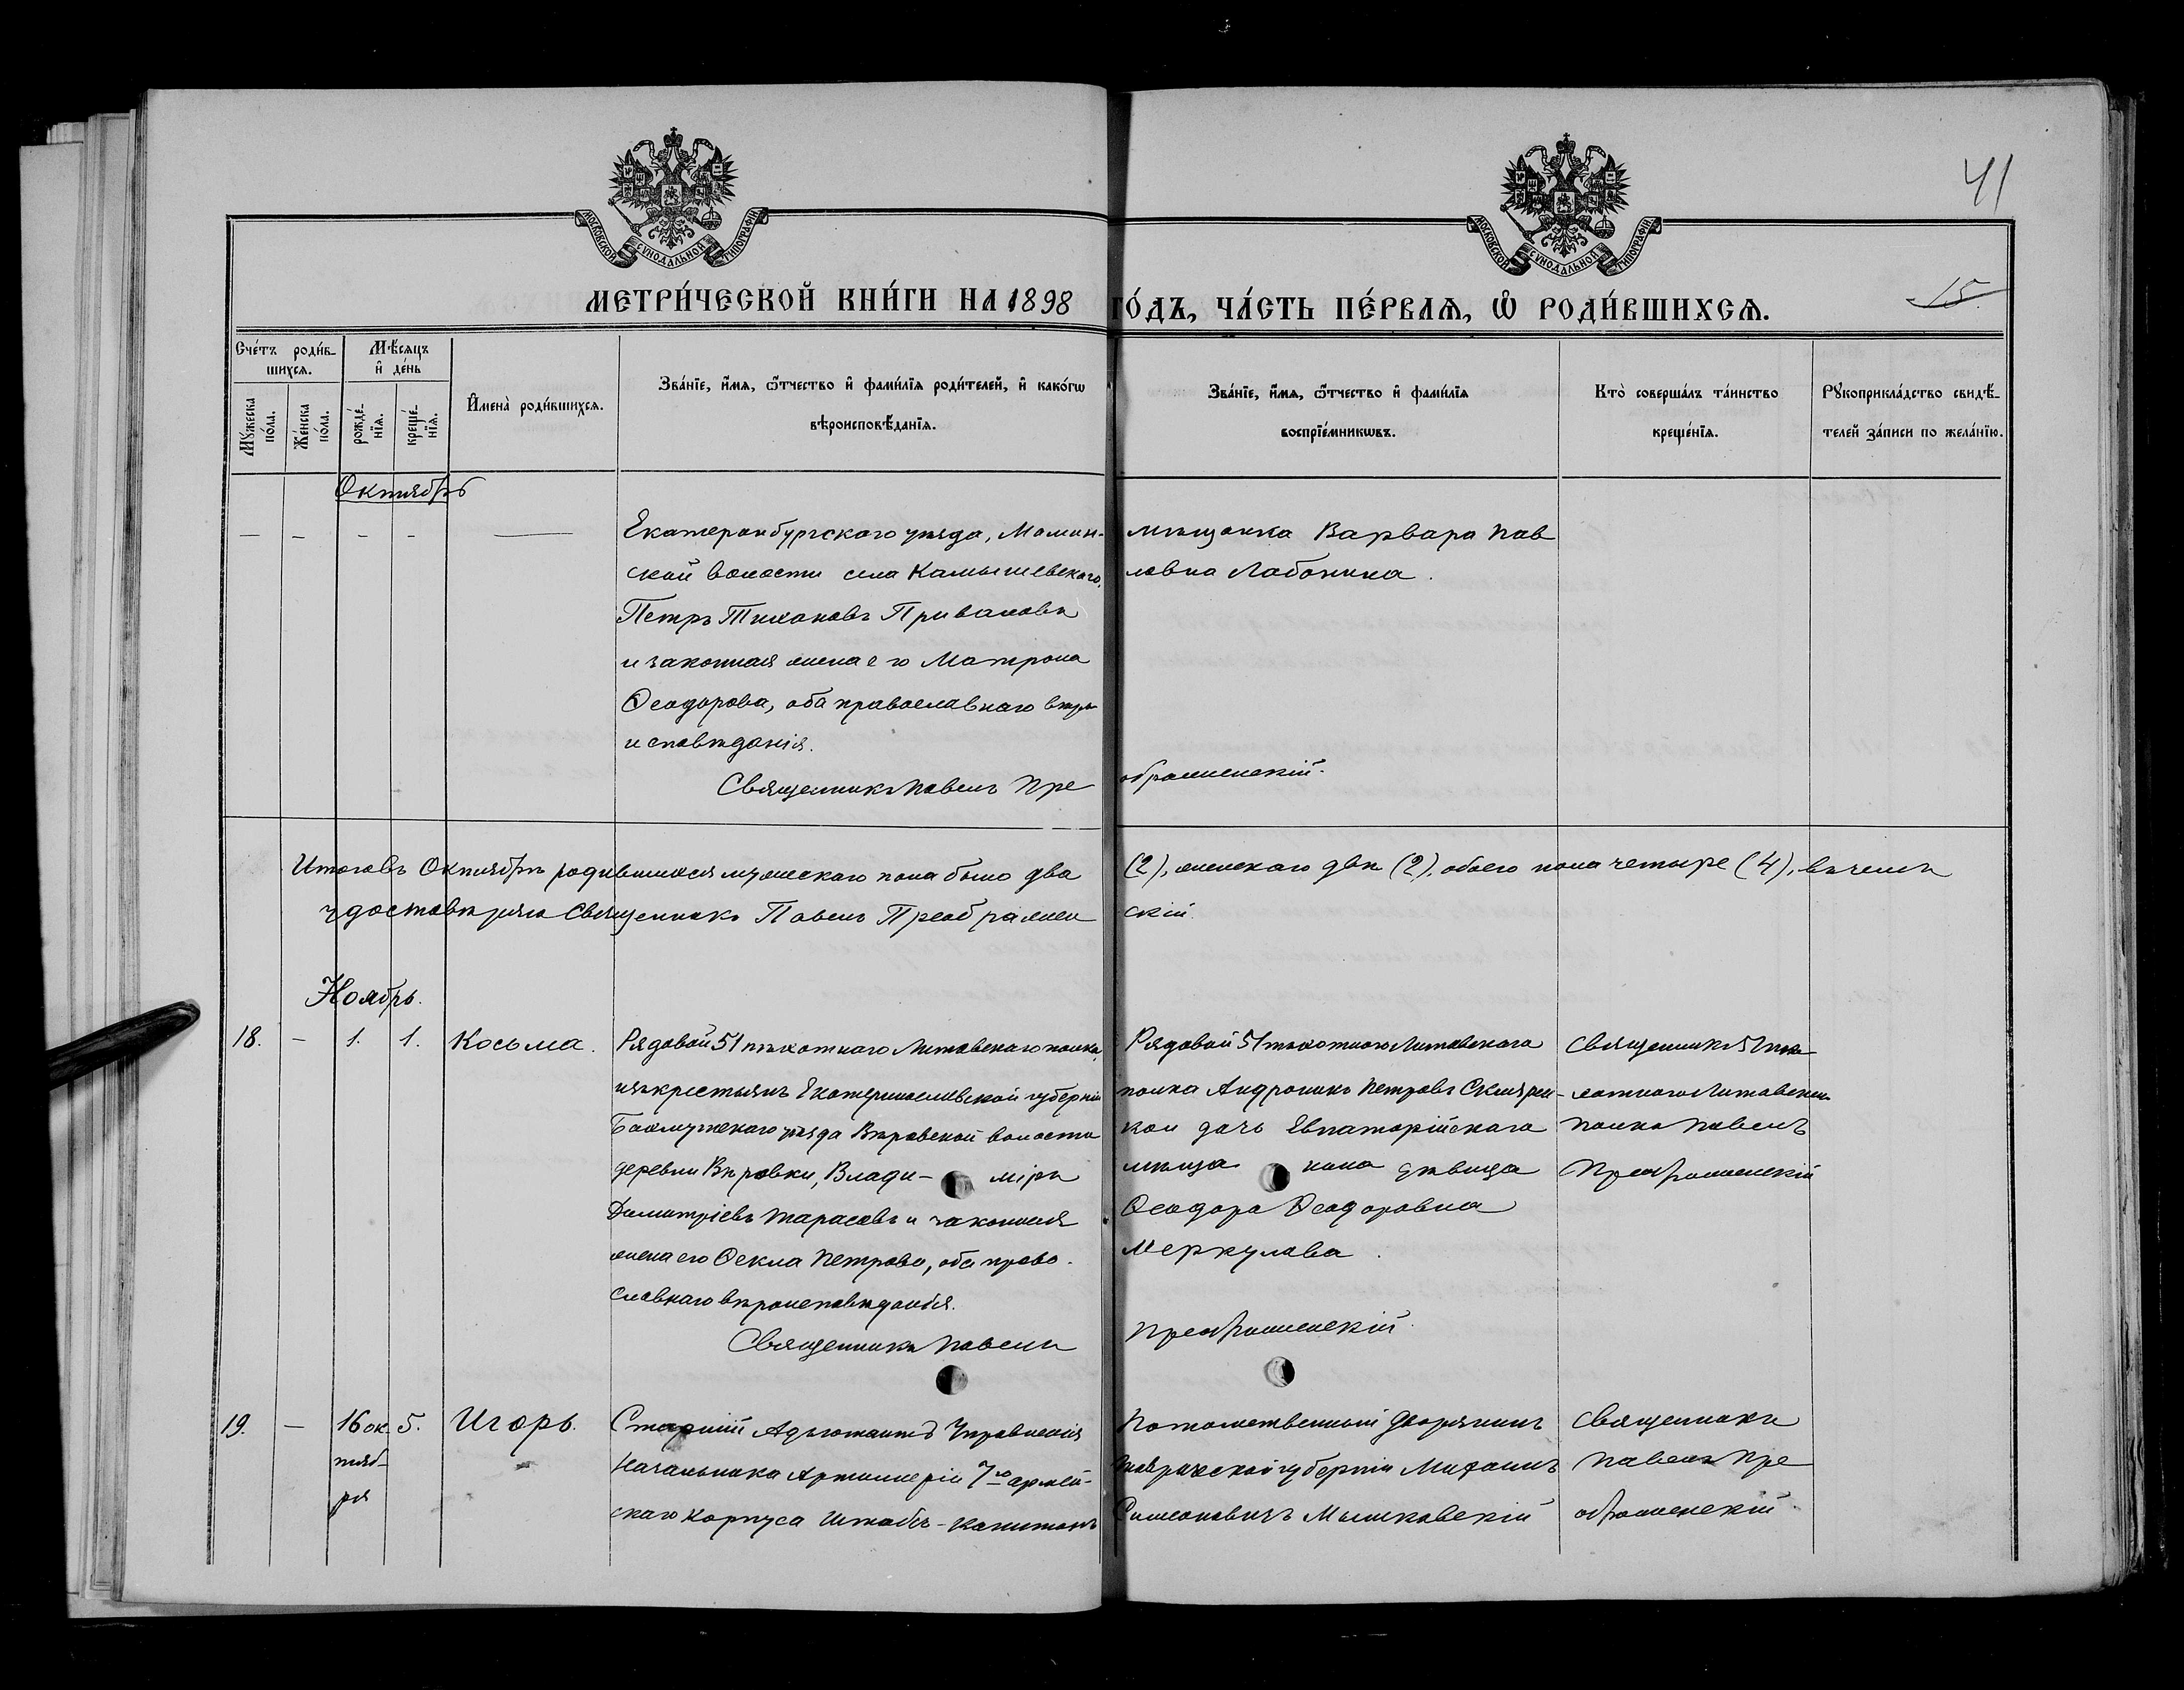 41
МОСКОВСКОЙ СѴНОДАЛЬНОЙ ТИПОГРАФІИ
МОСКОВСКОЙ СѴНОДАЛЬНОЙ ТИПОГРАФІИ
МЕТРИ́ЧЕСКОЙ КНИ́ГИ НА 1898 ГО́ДЪ, ЧА́СТЬ ПЕ́РВАѦ, Ѡ҆ РОДИ́ВШИХСѦ.
15
Сче́тъ роди́в-
шихсѧ.
Мꙋ́жеска
по́ла.
Же́нска
по́ла.
Мѣ́сяцъ
и҆ де́нь
рожде́-
нїѧ.
креще́-
нїѧ.
И҆мена̀ роди́вшихсѧ.
Зва́нїе, и҆́мѧ, ѻ҆́тчество и҆ фами́лїѧ роди́телей, и҆ како́гѡ
вѣроисповѣ́данїѧ.
Зва́нїе, и҆́мѧ, ѻ҆́тчество и҆ фами́лїѧ
воспрїе́мникѡвъ.
Кто̀ соверша́лъ та́инство
креще́нїѧ.
Рꙋкоприкла́дство свидѣ́-
телей за́писи по жела́нїю.
Октябрь
Екатеринбургскаго уѣзда, Мамин-
ской волости села Камышевскаго,
Петръ Тихоновъ Приваловъ
и законная жена его Матрона
Ѳеодорова, оба православнаго вѣро
исповѣданія.
мѣщанка Варвара Пав
ловна Лабонина.
Священникъ Павелъ Пре ображенскій.
Итого въ Октябрѣ родившихся мужескаго пола было два (2), женскаго двѣ (2), обоего пола четыре (4), въ чемъ
удостовѣряю Священникъ Павелъ Преображен скій.
Ноябрь.
18. — 1. 1. Косьма.
Рядовой 51 пѣхотнаго Литовскаго полка,
изъ крестьянъ Екатеринославской губерніи
Бахмутскаго уѣзда Вѣровской волости
деревни Вѣровки, Влади- міръ
Димитріевъ Тарасовъ и законная
жена его Ѳекла Петрова, оба право-
славнаго вѣроисповѣданія.
Рядовой 51 пѣхотнаго Литовскаго
полка Андроникъ Петровъ
дочь Евпаторійскаго
мѣща нина дѣвица
Ѳеодора Ѳеодоровна
Меркулова.
Священникъ 51 пѣ-
хотнаго Литовскаго
полка Павелъ
Преображенскій
Священникъ Павелъ Преображенскій.
19. — 16 ок. 5. Игорь.
тяб-
ря
Старшій Адъютантъ Управленія
Начальника Артиллеріи 7го армей-
скаго корпуса Штабсъ-Капитанъ
Потомственный дворянинъ
Таврической губерніи Михаилъ
Симеоновичъ Мышковскій
Священникъ
Павелъ Пре
ображенскій